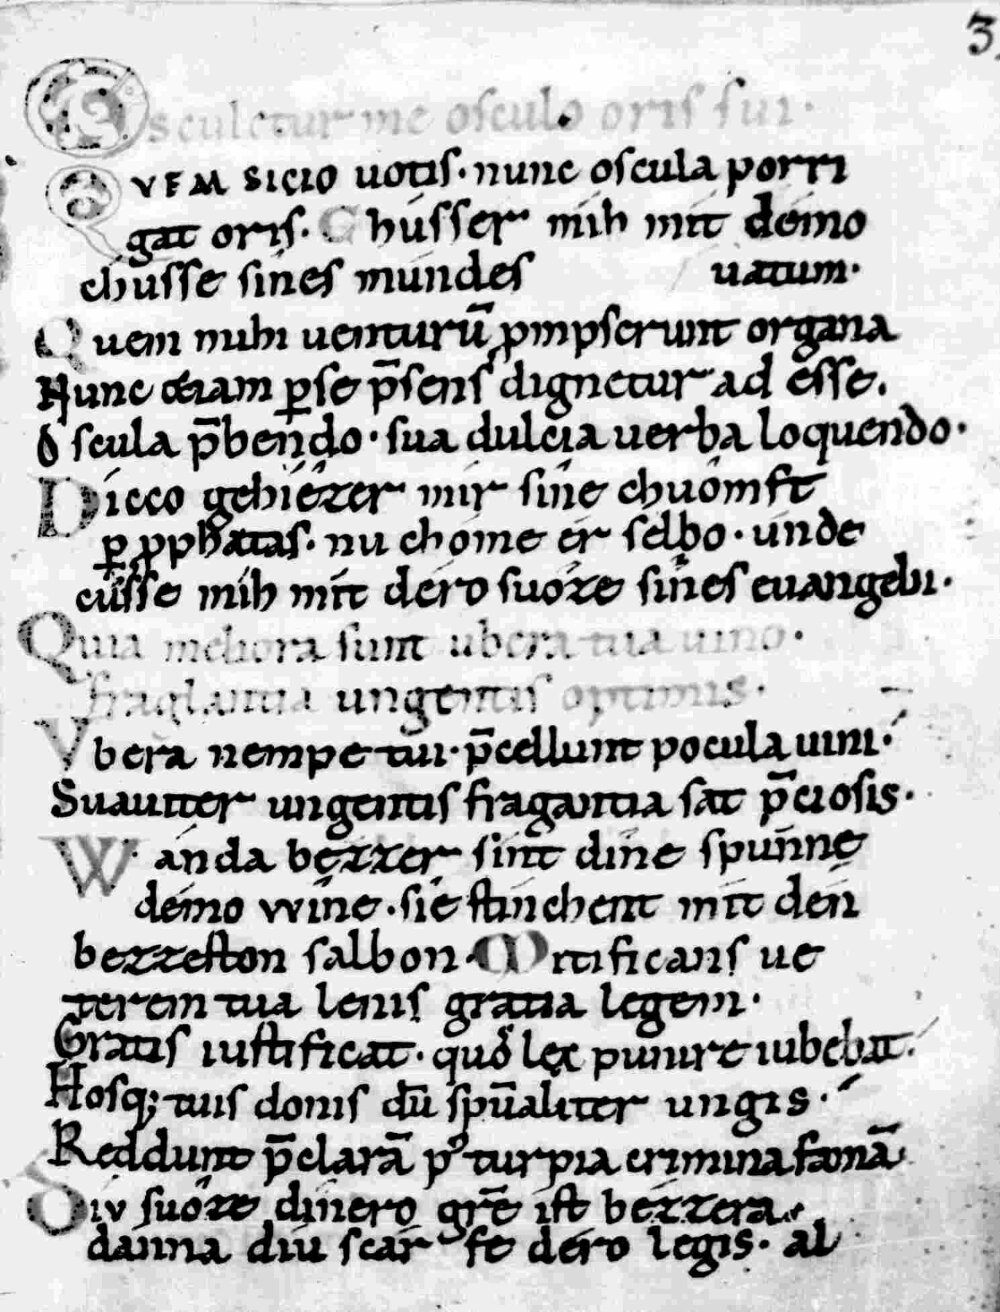 3
Osculetur me osculo oris sui·
QVEM SICIO uotis· nunc oscula porri
gat oris. Chússer mih mít démo
chusse sínes múndes uatum·
Quem mihi uenturū ꝓmpserunt organa
Nunc etiam ꝑse p̄sens dignetur ad esse.
Oscula p̄bendo· sua dulcia uerba loquendo·
Dícco gehiezer mír síne chuomft
ꝑ ꝓphatas· nu chome ér selbo· únde
cússe mih mít déro suóze sínes euangelii·
Quia meliora sunt ubera tua uino·
fraglantia ungentis optimis·
Vbera nempe tui· p̄cellunt pocula uini·
Suauiter ungentis fragantia sat p̄ciosis·
Wánda bézzer sínt díne spúnne
démo wíne· sie stínchent mít dén
bezzeston salbon· Mortificans ue
terem tua lenis gratia legem·
Gratis iustificat· quos lex punire iubebat·
Hosq; tuis donis dū spūaliter ungis·
Reddunt p̄clarā p᷒ turpia crimina famā·
Dív suóze dínero gr̄e íst bézzera
dánna díu scárfe déro legis· al